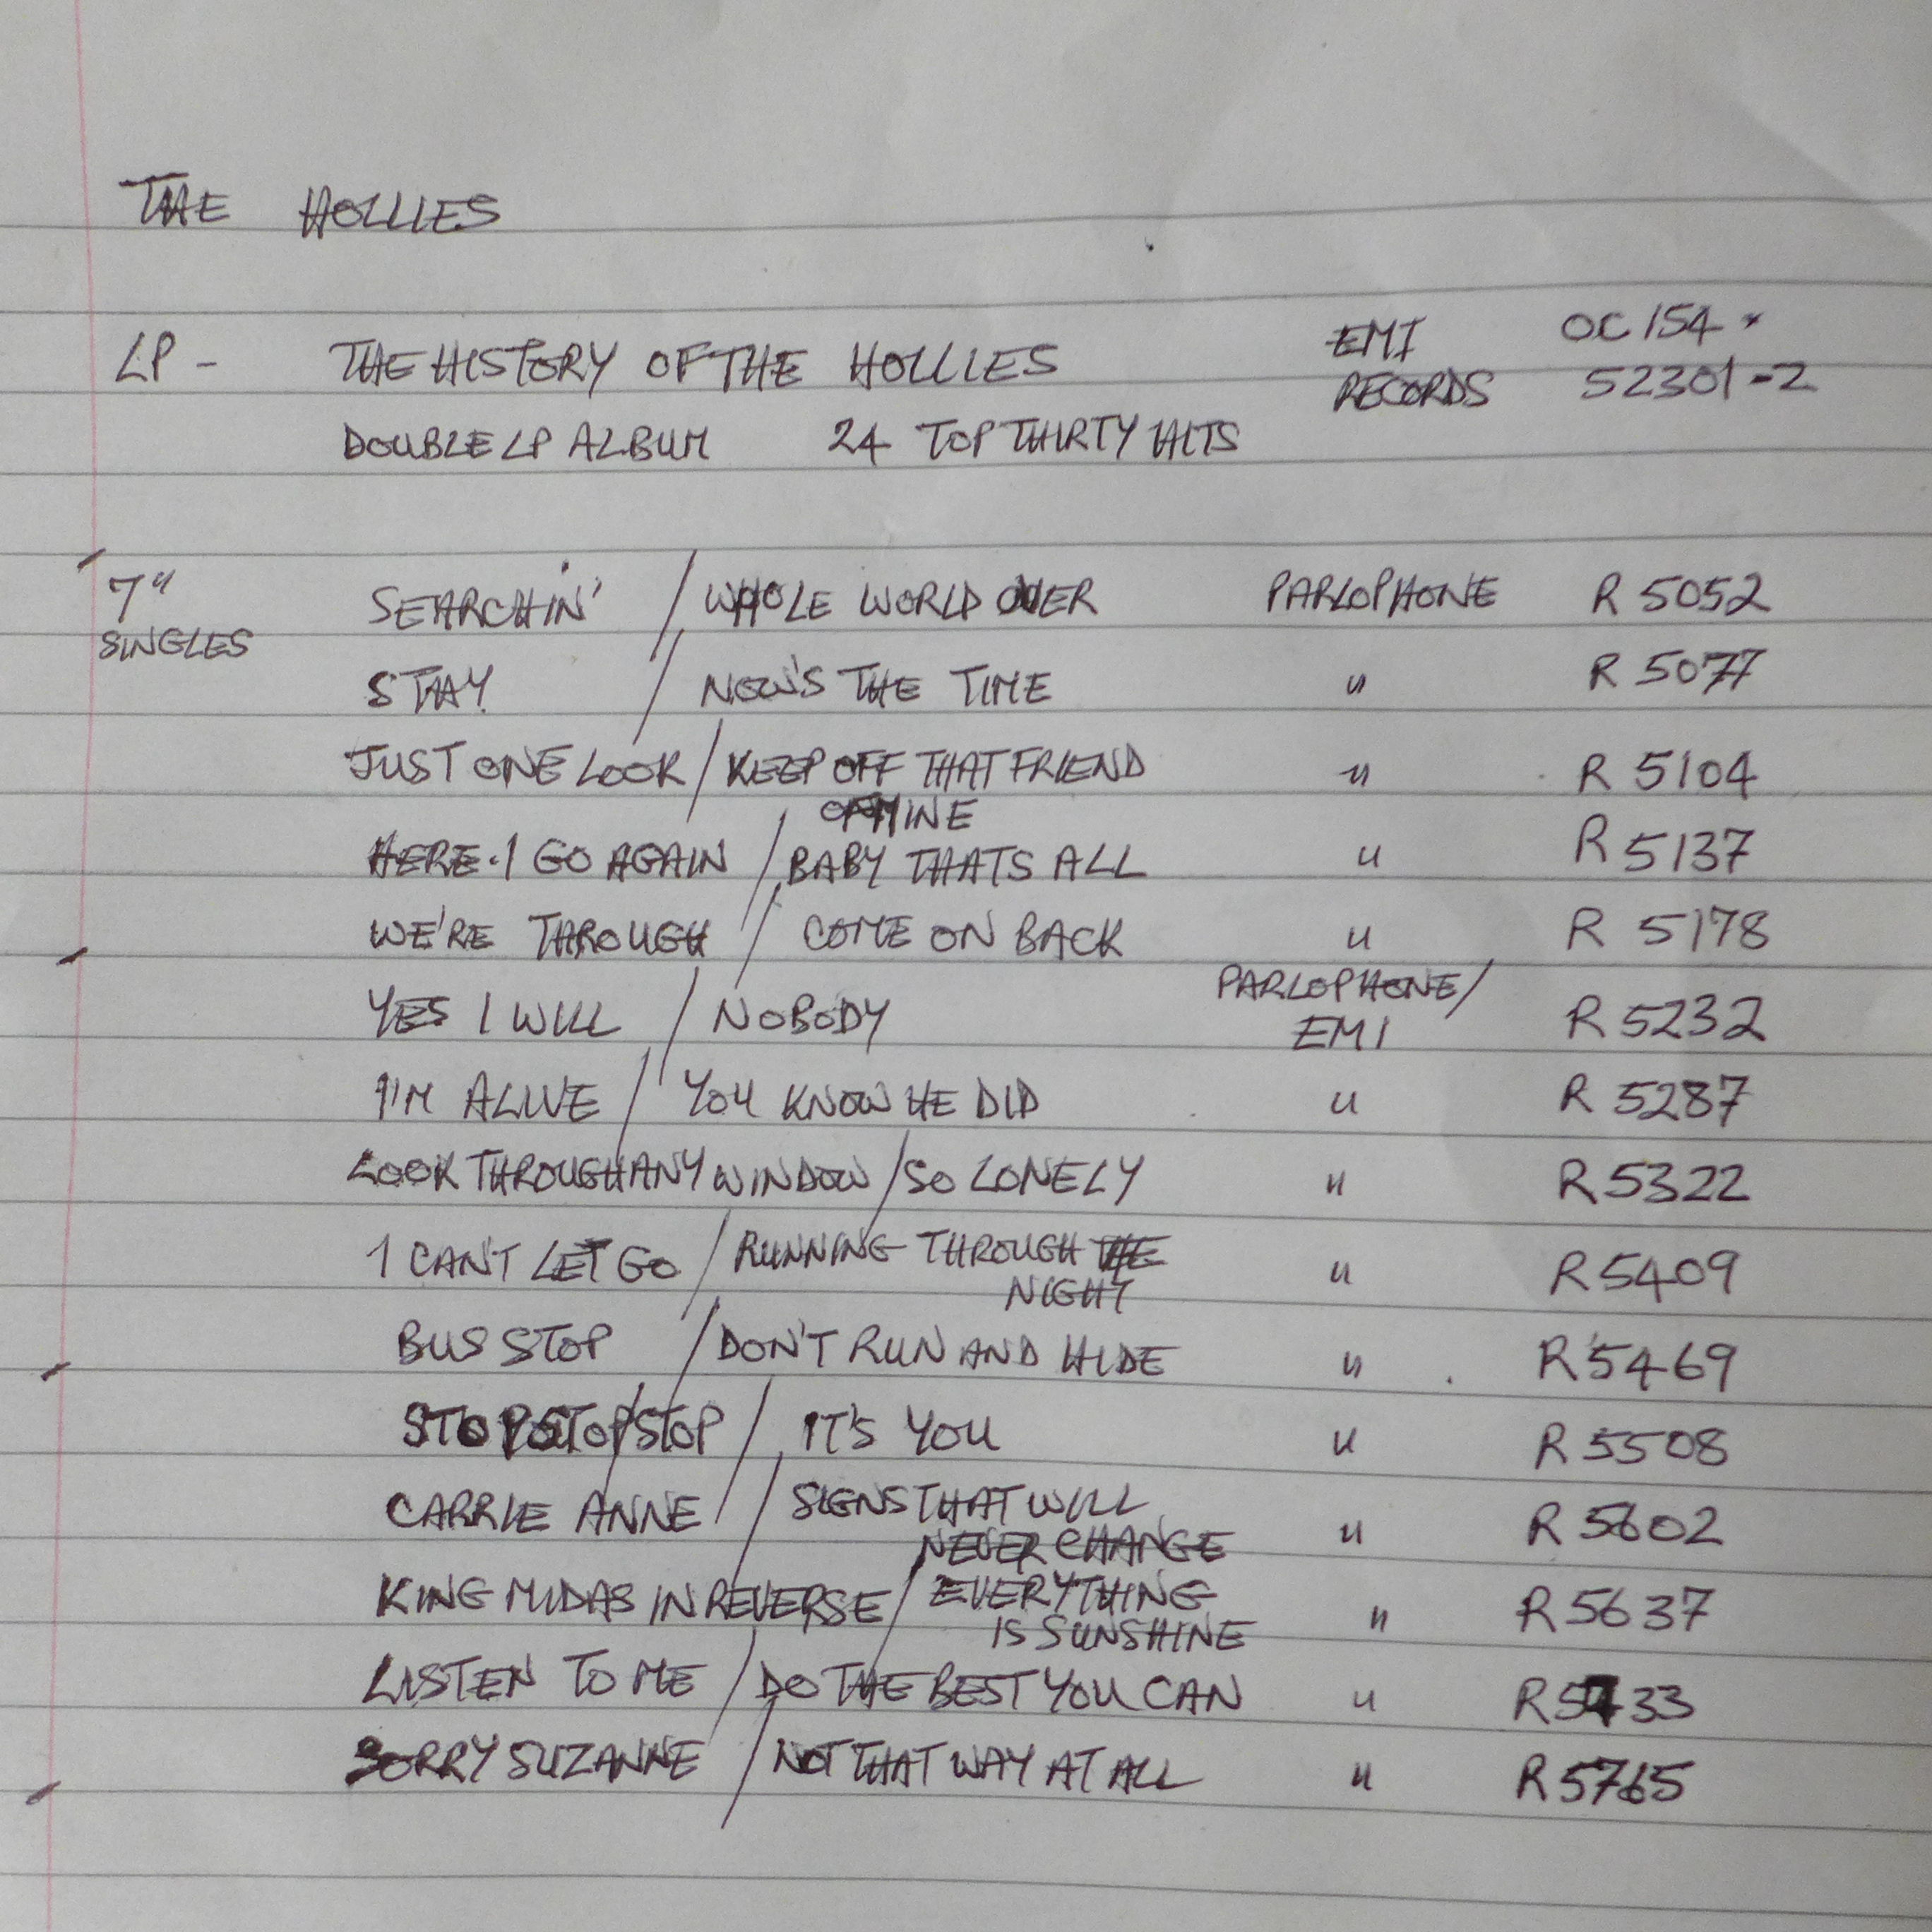 THE HOLLIES
LP - THE HISTORY OF THE HOLLIES EMI RECORDS OC 154 • 52301-2
DOUBLE LP ALBUM 24 TOP THIRTY HITS
7" SINGLES SEARCHIN' / WHOLE WORLD OVER PARLOPHONE R 5052
STAY / NOW'S THE TIME " R 5077
JUST ONE LOOK / KEEP OFF THAT FRIEND OF MINE " R 5104
HERE I GO AGAIN / BABY THATS ALL " R 5137
WE'RE THROUGH / COME ON BACK " R 5178
YES I WILL / NOBODY PARLOPHONE/ EMI R 5232
I'M ALIVE / YOU KNOW HE DID " R 5287
LOOK THROUGH ANY WINDOW / SO LONELY " R 5322
I CAN'T LET GO / RUNNING THROUGH THE NIGHT " R 5409
BUS STOP / DON'T RUN AND HIDE " R 5469
STOP STOP STOP / IT'S YOU " R 5508
CARRIE ANNE / SIGNS THAT WILL NEVER CHANGE " R 5602
KING MIDAS IN REVERSE / EVERYTHING IS SUNSHINE " R 5637
LISTEN TO ME / DO THE BEST YOU CAN " R 5733
SORRY SUZANNE / NOT THAT WAY AT ALL " R 5765